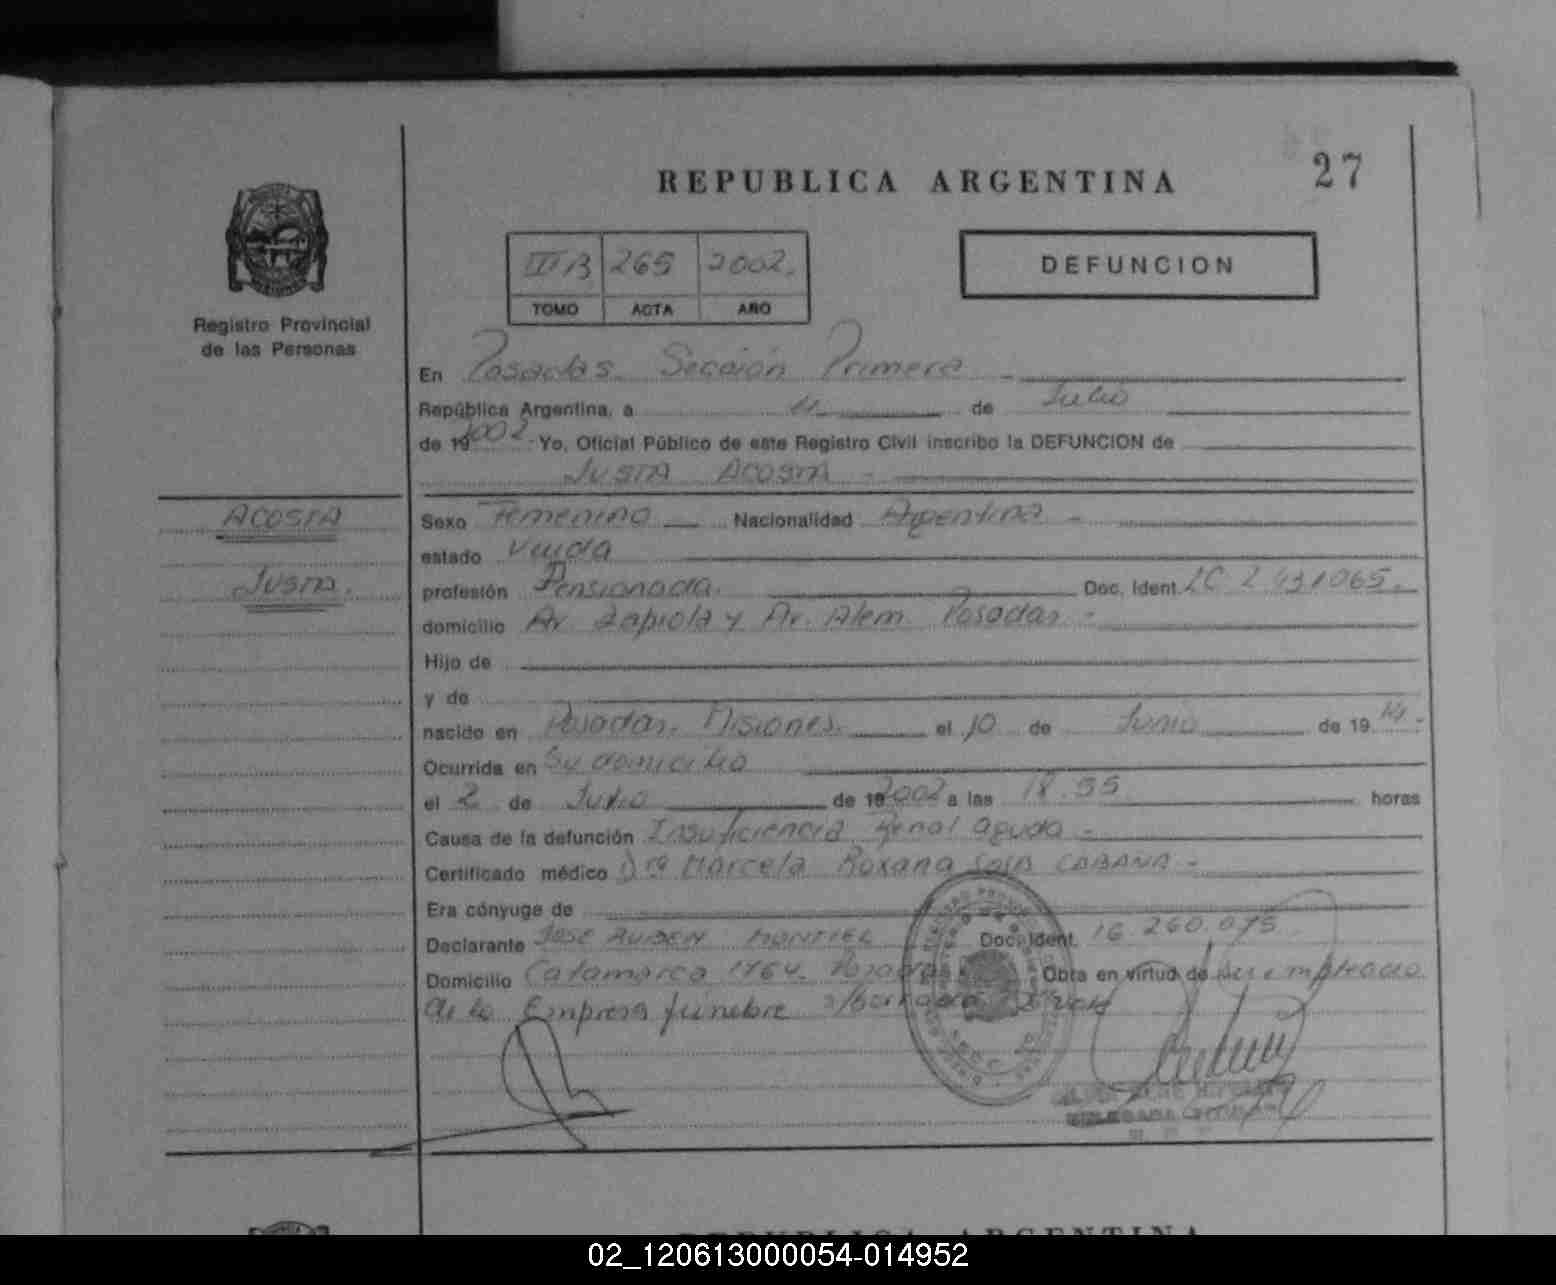 REPUBLICA ARGENTINA
27
Registro Provincial
de las Personas
III B 265 2002.
TOMO ACTA AÑO
DEFUNCION
En Posadas Sección Primera
República Argentina, a 4 de Julio
de 19 2002. Yo, Oficial Público de este Registro Civil inscribo la DEFUNCION de
JUSTA ACOSTA
ACOSTA
JUSTA.
Sexo Femenino Nacionalidad Argentina
estado viuda
profesión Pensionada. Doc. Ident. LC 2.431065.
domicilio Av. Zapiola y Av. Alem. Posadas
Hijo de
y de
nacido en Posadas. Misiones. el 10 de Junio de 19 14
Ocurrida en Su domicilio
el 2 de Julio de 19 2002 a las 18.55 horas
Causa de la defunción Insuficiencia Renal aguda
Certificado médico Dra Marcela Roxana CABANA
Era cónyuge de
Declarante JOSE RUBEN MONTIEL Doc. Ident. 16.260.075
Domicilio Catamarca 1764. Posadas Obra en virtud de ser empleado
de la Empresa fúnebre
REPUBLICA ARGENTINA
02_120613000054-014952